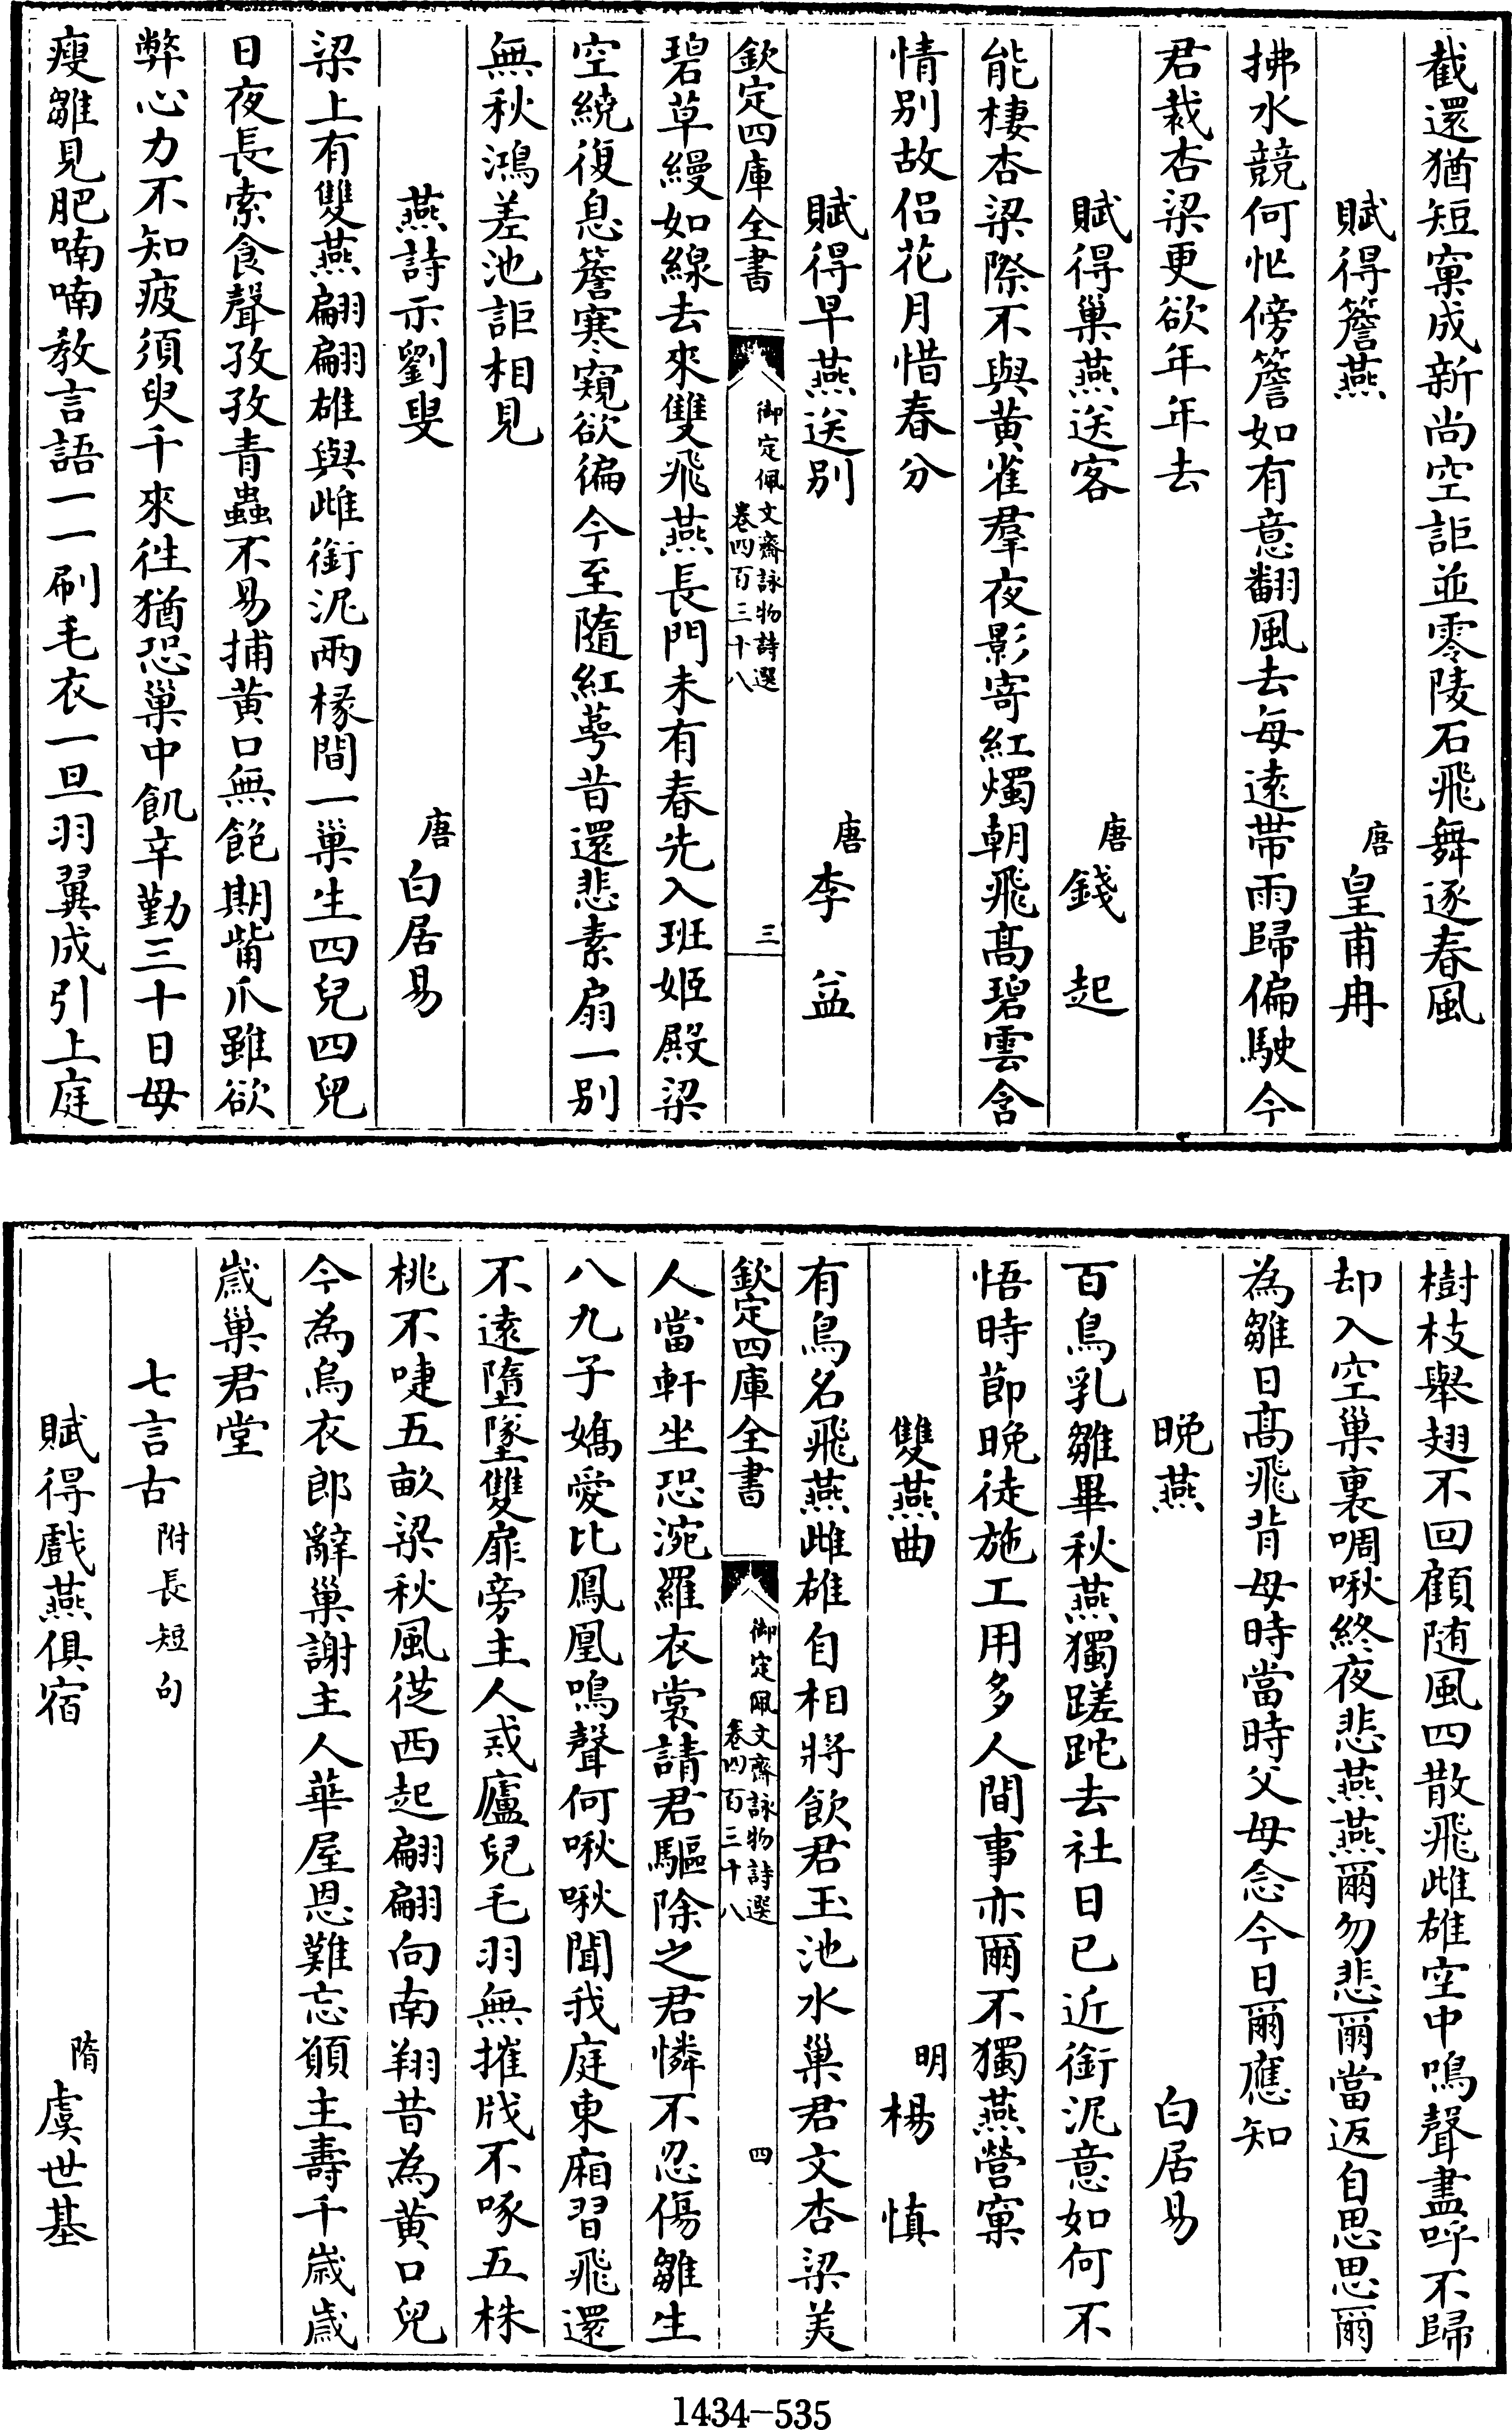 截還猶短窠成新尚空詎並零陵石飛舞逐春風
賦得簷燕 唐 皇甫冉
拂水競何忙傍簷如有意翻風去每遠帶雨歸偏駛今
君裁杏梁更欲年年去
賦得巢燕送客 唐 錢起
能棲杏梁際不與黄雀羣夜影寄紅燭朝飛髙碧雲含
情别故侣花月惜春分
賦得早燕送别 唐 李益
欽定四庫全書 御定佩文齋詠物詩選 卷四百三十八 三
碧草縵如線去來雙飛燕長門未有春先入班姬殿梁
空繞復息簷寒窺欲徧今至隨紅蕚昔還悲素扇一别
無秋鴻差池詎相見
燕詩示劉叟 唐 白居易
梁上有雙燕翩翩雄與雌銜泥兩椽間一巢生四兒四兒
日夜長索食聲孜孜青蟲不易捕黄口無飽期觜爪雖欲
弊心力不知疲須臾千來往猶恐巢中飢辛勤三十日母
瘦雛見肥喃喃教言語一一刷毛衣一旦羽翼成引上庭
樹枝舉翅不回顧随風四散飛雌雄空中鳴聲盡呼不歸
却入空巢裏啁啾終夜悲燕燕爾勿悲爾當返自思思爾
為雛日髙飛背母時當時父母念今日爾應知
晚燕 白居易
百鳥乳雛畢秋燕獨蹉跎去社日已近銜泥意如何不
悟時節晚徒施工用多人間事亦爾不獨燕營窠
雙燕曲 明 楊慎
有鳥名飛燕雌雄自相將飲君玉池水巢君文杏梁美
欽定四庫全書 御定佩文齋詠物詩選 卷四百三十八 四
人當軒坐恐涴羅衣裳請君驅除之君憐不忍傷雛生
八九子嬌愛比鳳凰鳴聲何啾啾聞我庭東廂習飛還
不遠墮墜雙扉旁主人戒廬兒毛羽無摧戕不啄五株
桃不啑五畝梁秋風從西起翩翩向南翔昔為黄口兒
今為烏衣郎辭巢謝主人華屋恩難忘願主壽千歲歲
歲巢君堂
七言古 附長短句
賦得戲燕俱宿 隋 虞世基
1434-535